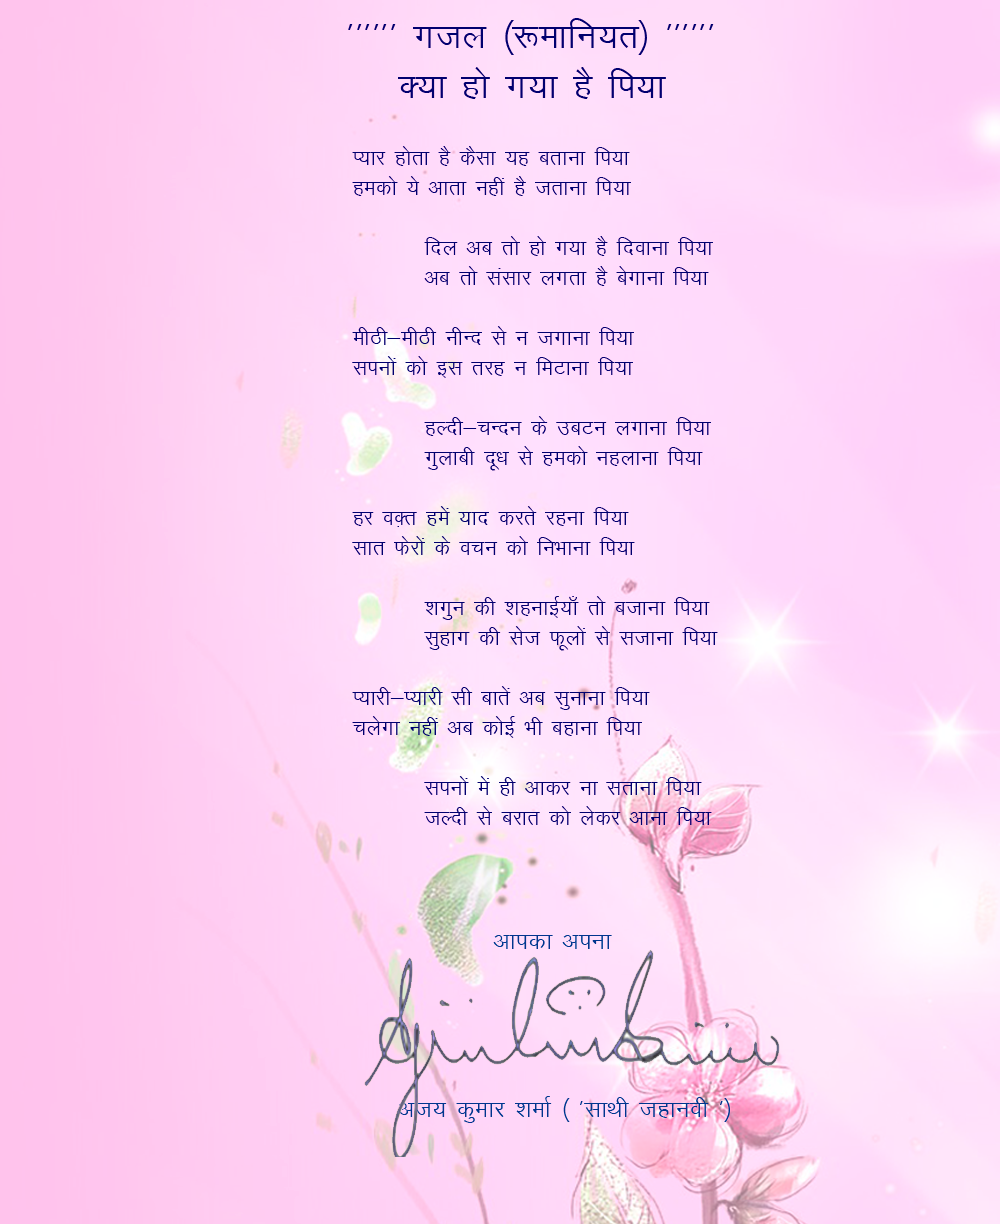 ’’’’’’ गजल (रूमानियत) ’’’’’’
क्या हो गया है पिया
प्यार होता है कैसा यह बताना पिया
हमको ये आता नहीं है जताना पिया
दिल अब तो हो गया है दिवाना पिया
अब तो संसार लगता है बेगाना पिया
मीठी–मीठी नीन्द से न जगाना पिया
सपनों को इस तरह न मिटाना पिया
हल्दी–चन्दन के उबटन लगाना पिया
गुलाबी दूध से हमको नहलाना पिया
हर वक़्त हमें याद करते रहना पिया
सात फेरों के वचन को निभाना पिया
शगुन की शहनाईयाँ तो बजाना पिया
सुहाग की सेज फूलों से सजाना पिया
प्यारी–प्यारी सी बातें अब सुनाना पिया
चलेगा नहीं अब कोई भी बहाना पिया
सपनों में ही आकर ना सताना पिया
जल्दी से बरात को लेकर आना पिया
आपका अपना
अजय कुमार शर्मा ( ’साथी जहानवी ‘)